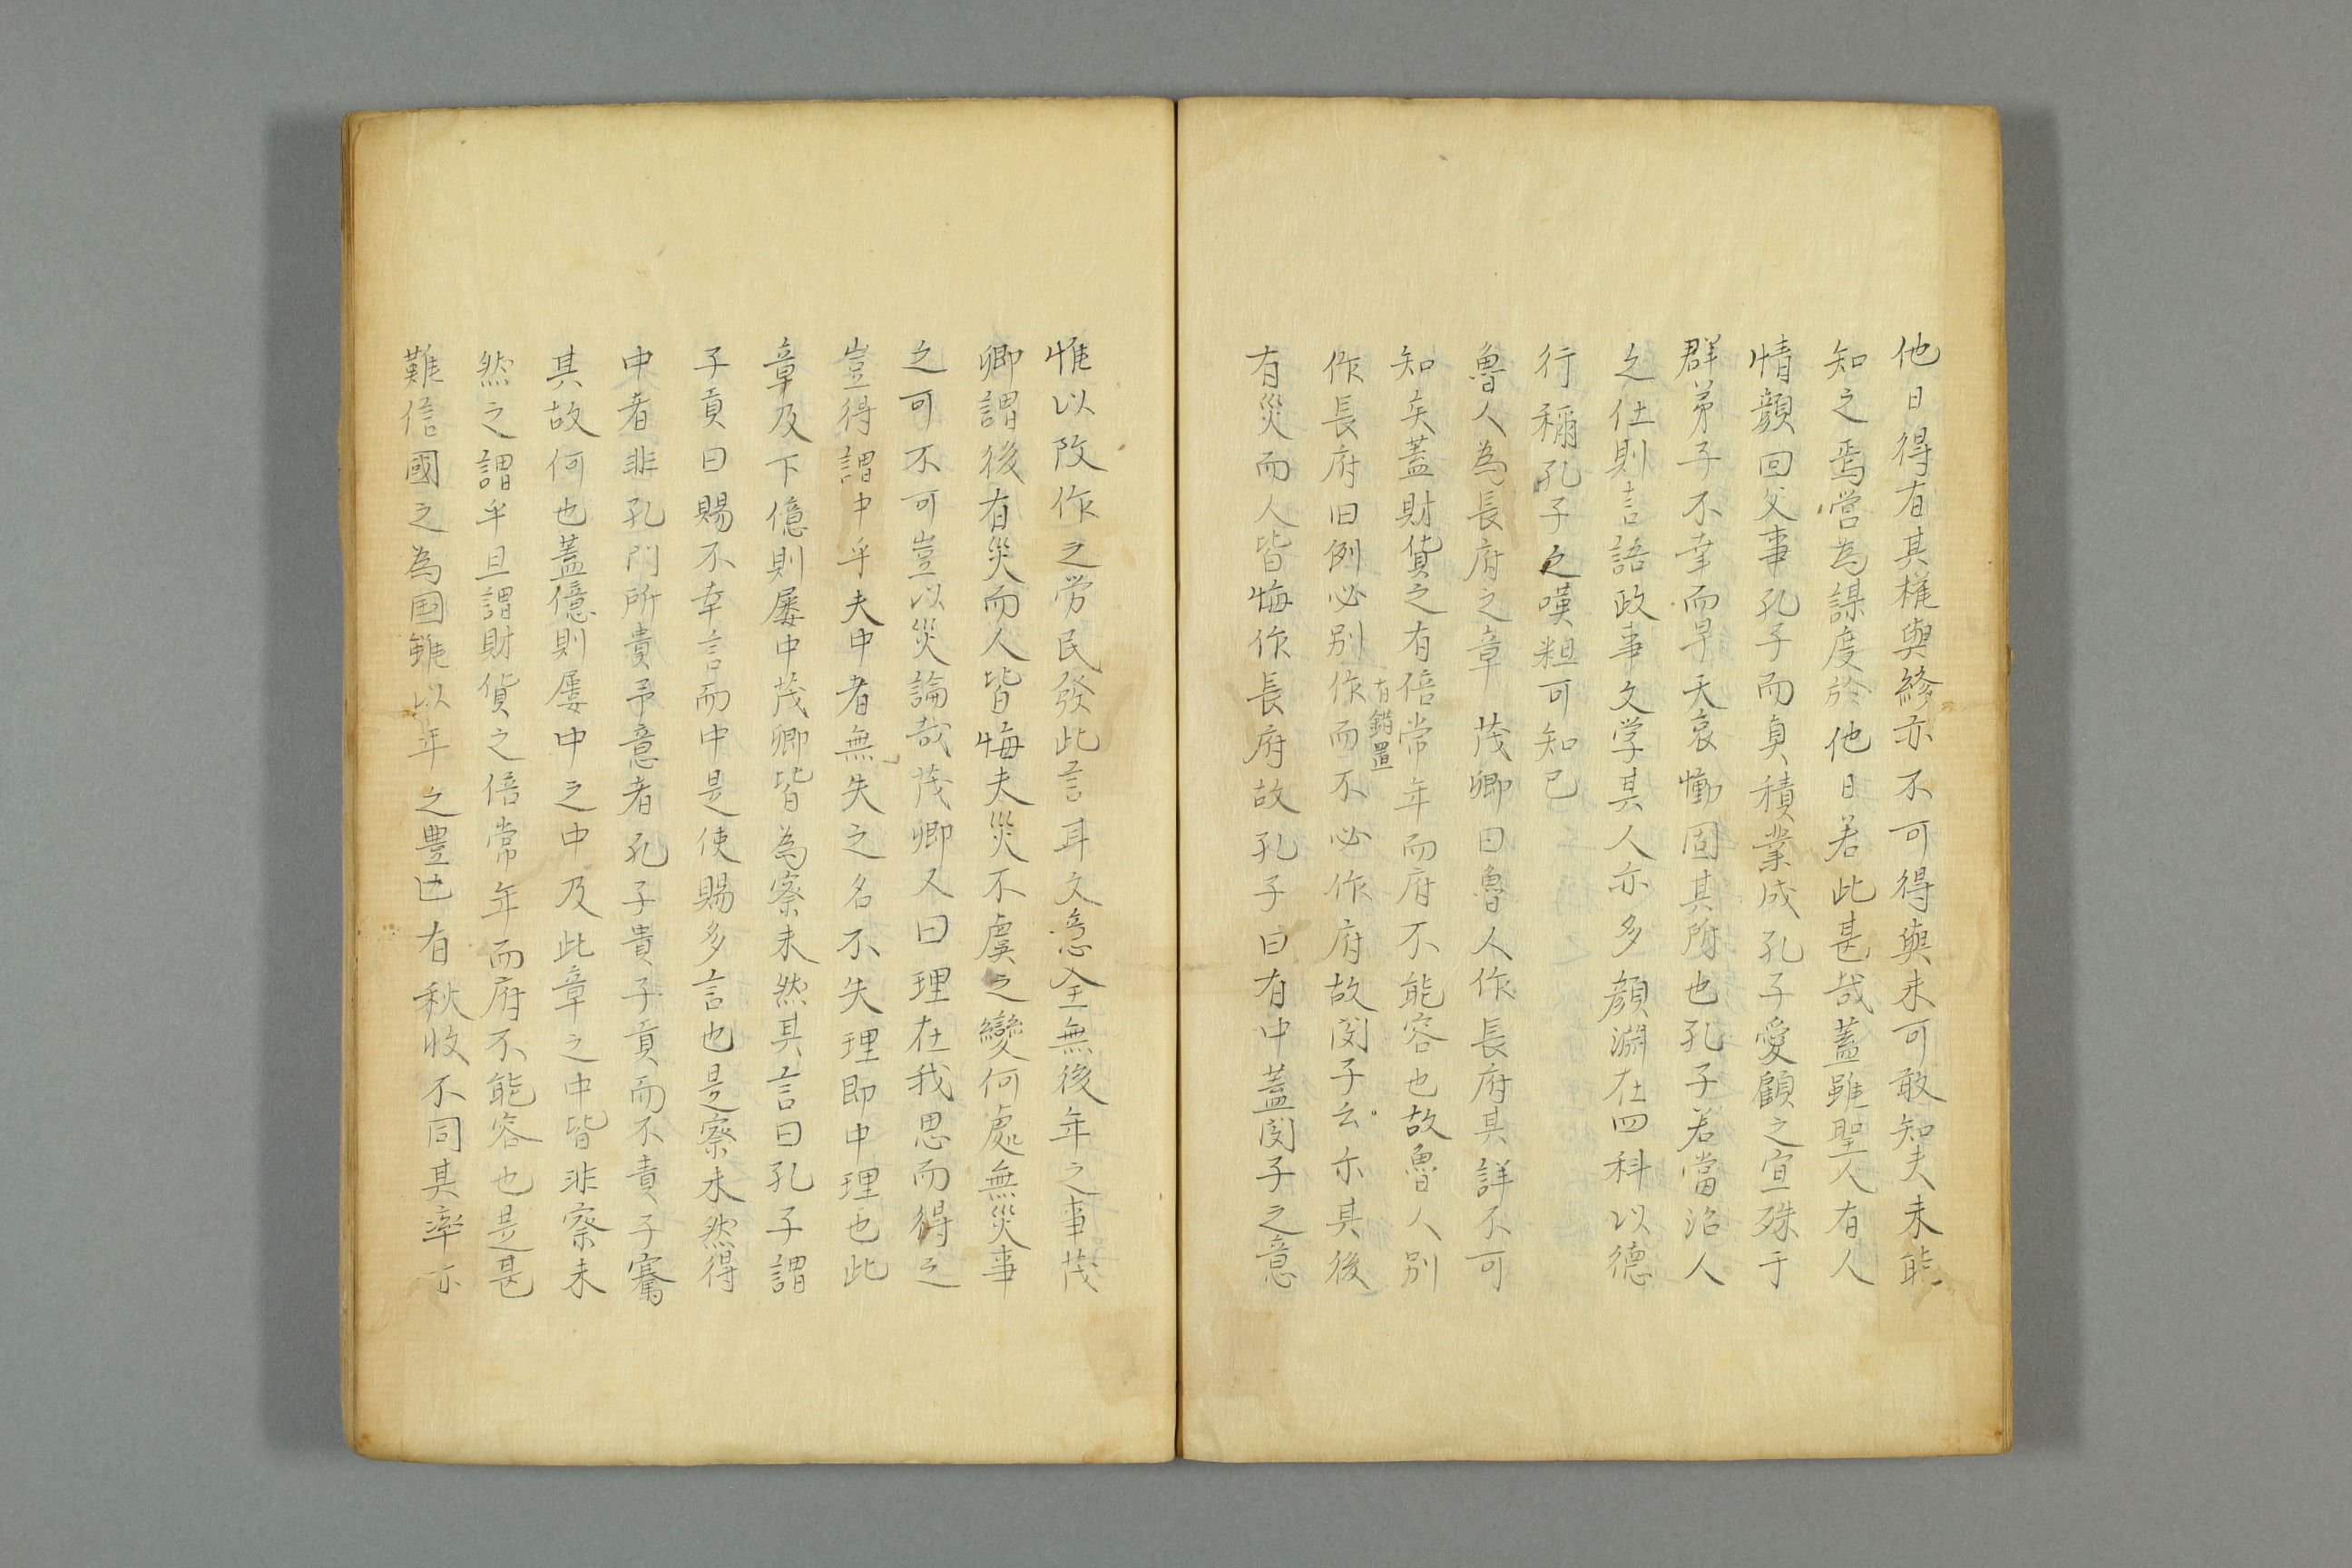 他日得有其權與終亦不可得與未可敢知夫未能
知之焉営為謀度於他日若此甚哉蓋雖聖人有人
情顔回父事孔子而貞積業成孔子愛顧之宜殊于
群弟子不幸而早夭哀慟固其所也孔子若當治人
之仕則言語政事文学其人亦多顔淵在四科以德
行稱孔子之嘆粗可知已
魯人為長府之章 茂卿曰魯人作長府其詳不可
知矣蓋財貨之有倍常年而府不能容也故魯人別
有錯置
作長府旧例必別作而不必作府故閔子云亦其後
有災而人皆悔作長府故孔子曰有中蓋閔子之意
惟以改作之労民發此言耳文意全無後年之事茂
卿謂後有災而人皆悔夫災不虞之變何處無災事
之可不可豈以災論哉茂卿又曰理在我思而得之
豈得謂中乎夫中者無失之名不失理即中理也此
章及下億則屢中茂卿皆為察未然其言曰孔子謂
子貢曰賜不幸言而中是使賜多言也是察未然得
中者非孔門所貴予意者孔子貴子貢而不責子騫
其故何也蓋億則屢中之中及此章之中皆非察未
然之謂乎且謂財貨之倍常年而府不能容也是甚
難信國之為国雖以年之豊凶有秋收不同其率亦